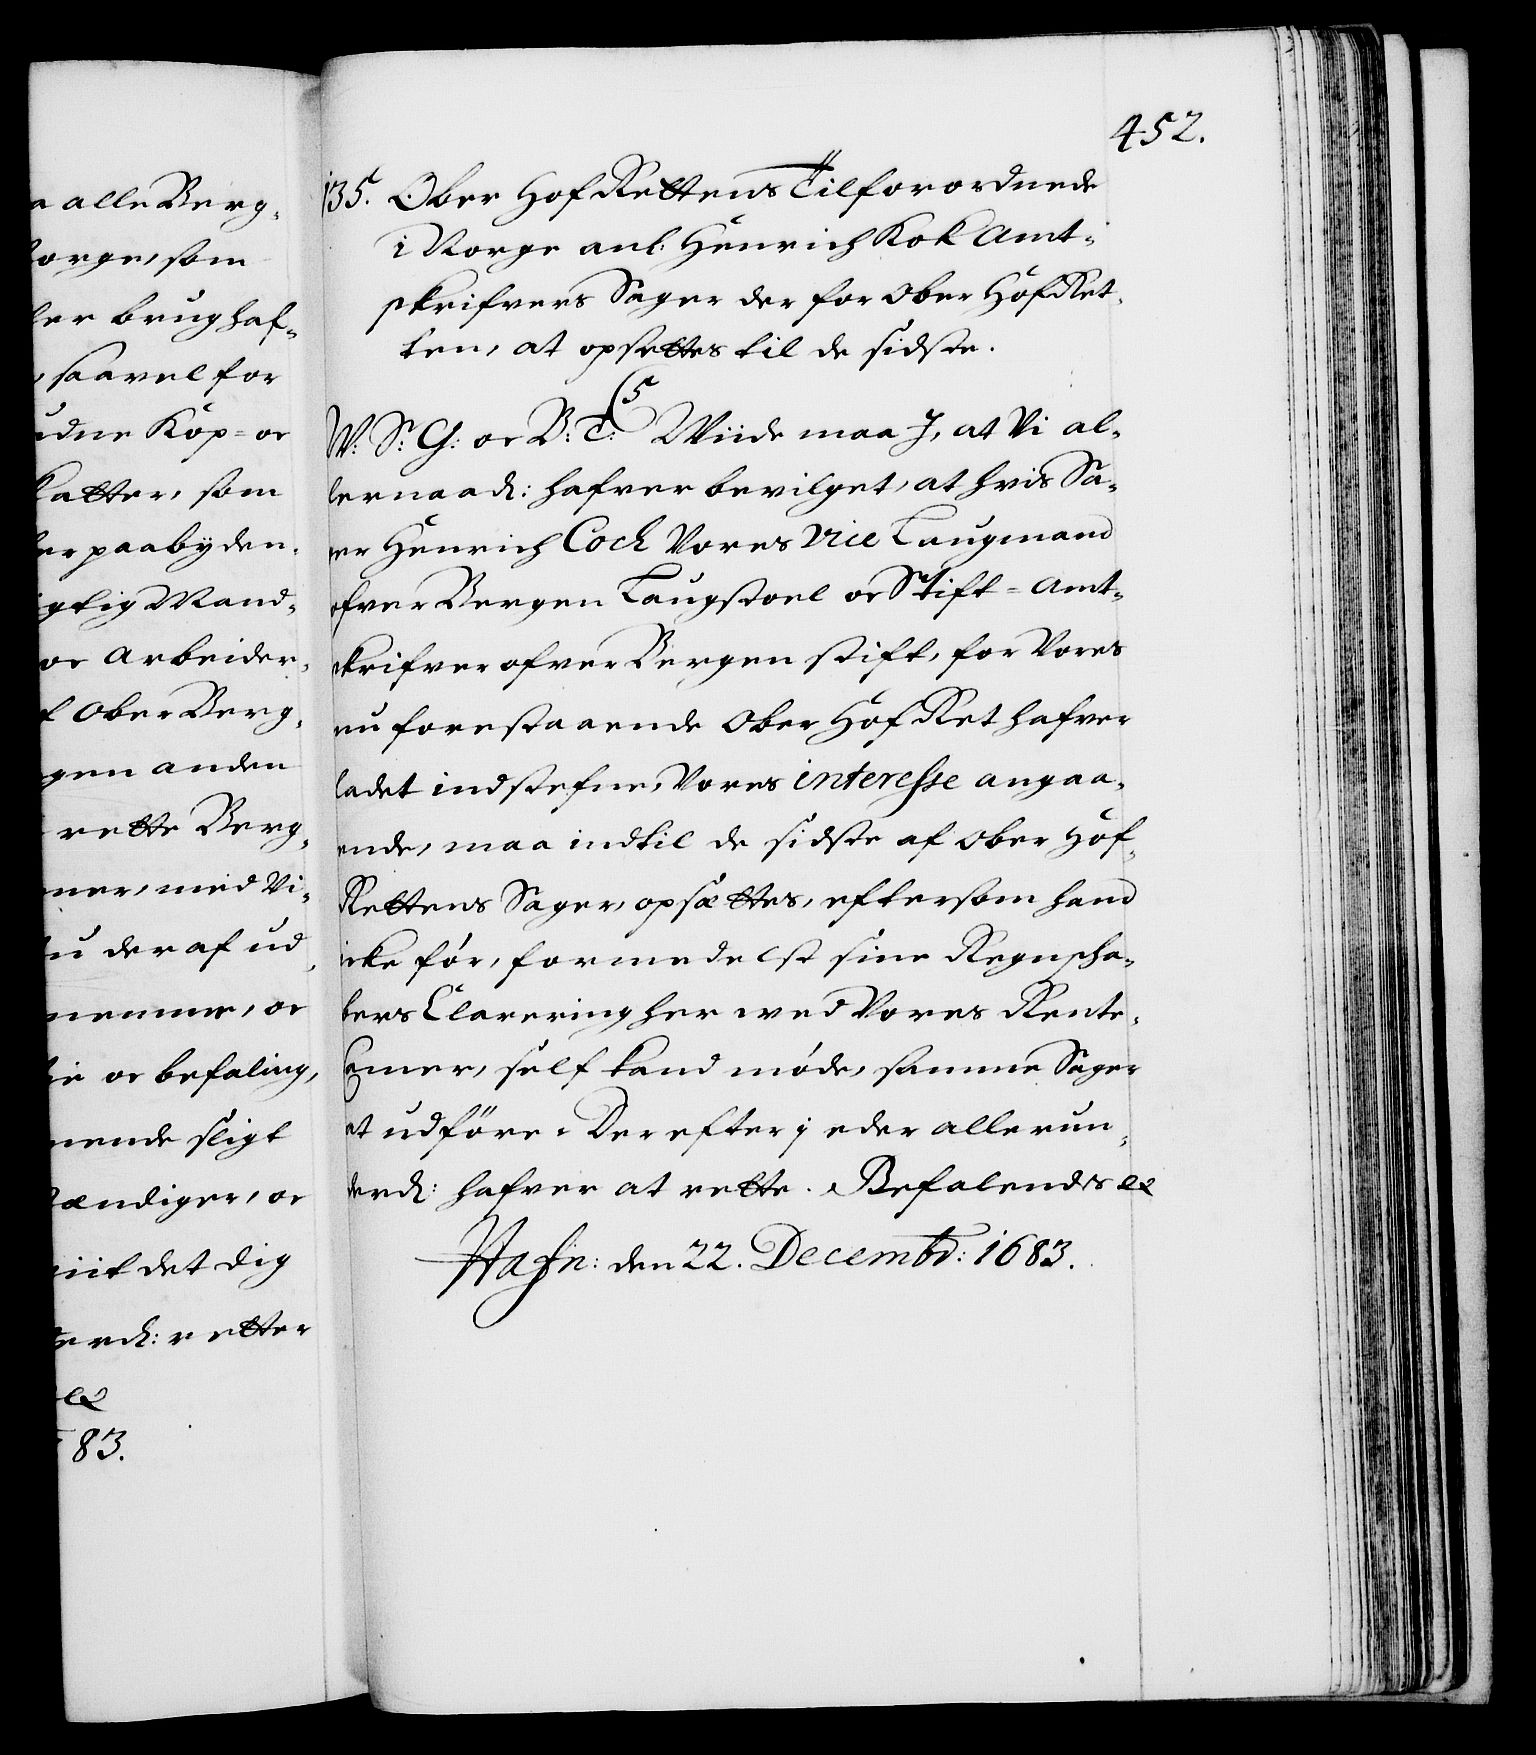 a alle Berg-
orge, som
er brug haf-
, saavel for
udne Kôp- oc
atter, som
er paabyden-
gtig Mand-
oc Arbeider-
f Ober Berg-
gen anden
rette Berg-
ner, med Vi-
u deraf ud
nemme, oc
ie oc befaling,
nende sligt
ændiger, oc
iit det dig
erd: retter
ec
83.
452.
135. Ober HofRettens Tilforordnede
i Norge anl: Henrich Kok Amt-
skrifvers Sager der for Ober HofRet-
ten, at opsettes til de sidste.
C5
W: S: G: oc B: T: Wiide maa J, at Vi al-
lernaad: hafver bevilget, at hvis Sa-
ger Henrich Coch Vores Vice Laugmand
ofver Bergen Laugstoel oc Stift-Amt-
skrifver ofver Bergen Stift, for Vores
nu forestaaende Ober Hof Ret hafver
ladet indstefne, Vores interesse angaa-
ende, maa indtil de sidste af Ober Hof-
Rettens Sager, opsættes, eftersom hand
icke før, formedelst sine Regnscha-
bers Clarering her ved Vores Rente-
Camer, self kand møde, samme Sager
at udföre. Derefter j eder allerun-
derd: hafver at rette. Befalendis ec
Hafn: den 22. Decembr: 1683.